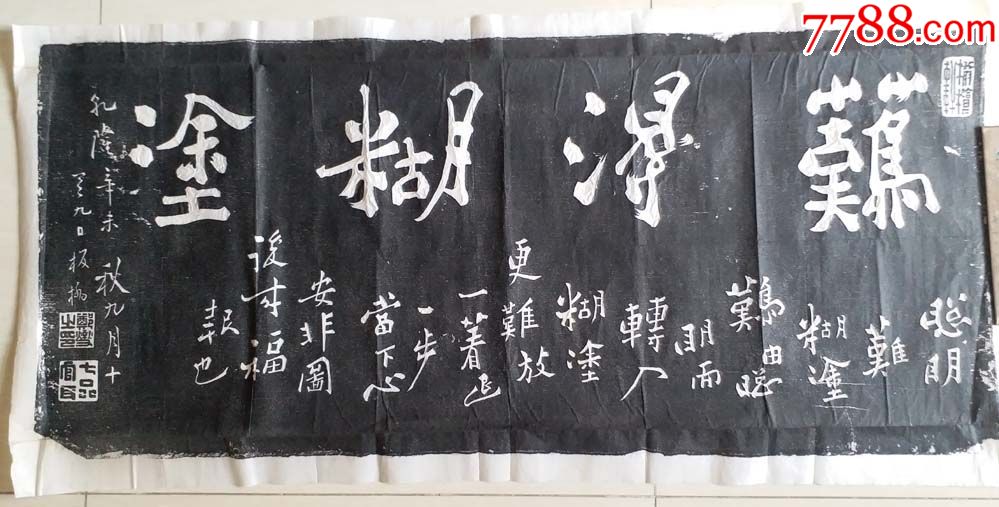 7788.com
難得糊塗
聰明
難
糊塗
難由聰
明而
轉入
糊塗
更難放
一著退
一步
當下心
安非圖
後來福
報也
乾隆辛未秋九月十
有九日板橋
鄭燮之印
七品官耳